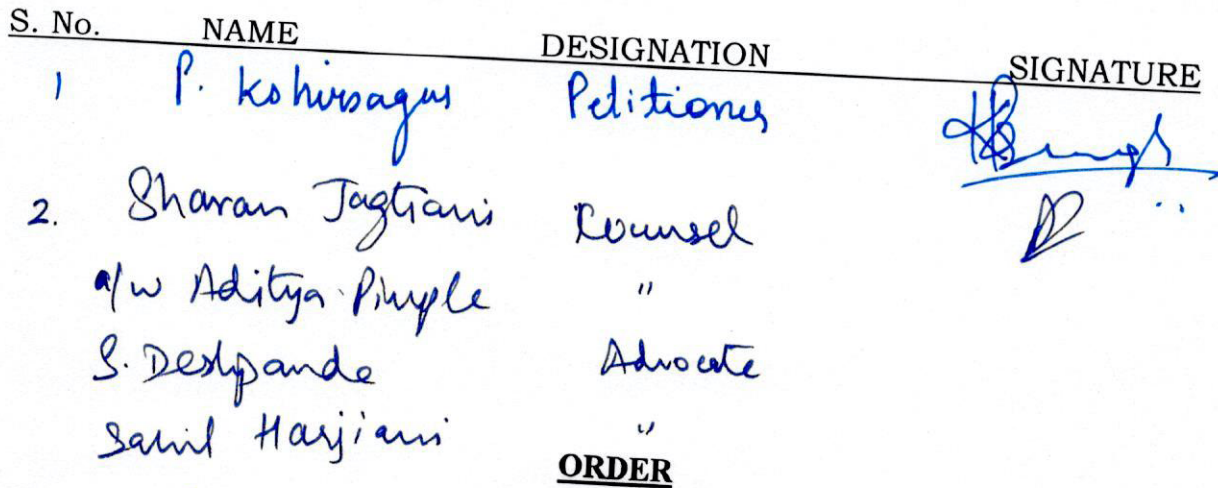 S. No. NAME DESIGNATION SIGNATURE
1 P. Kshirsagar Petitioner
2. Sharan Jagtiani Counsel
a/w Aditya Pimple "
S. Deshpande Advocate
Sahil Harjiani "
ORDER